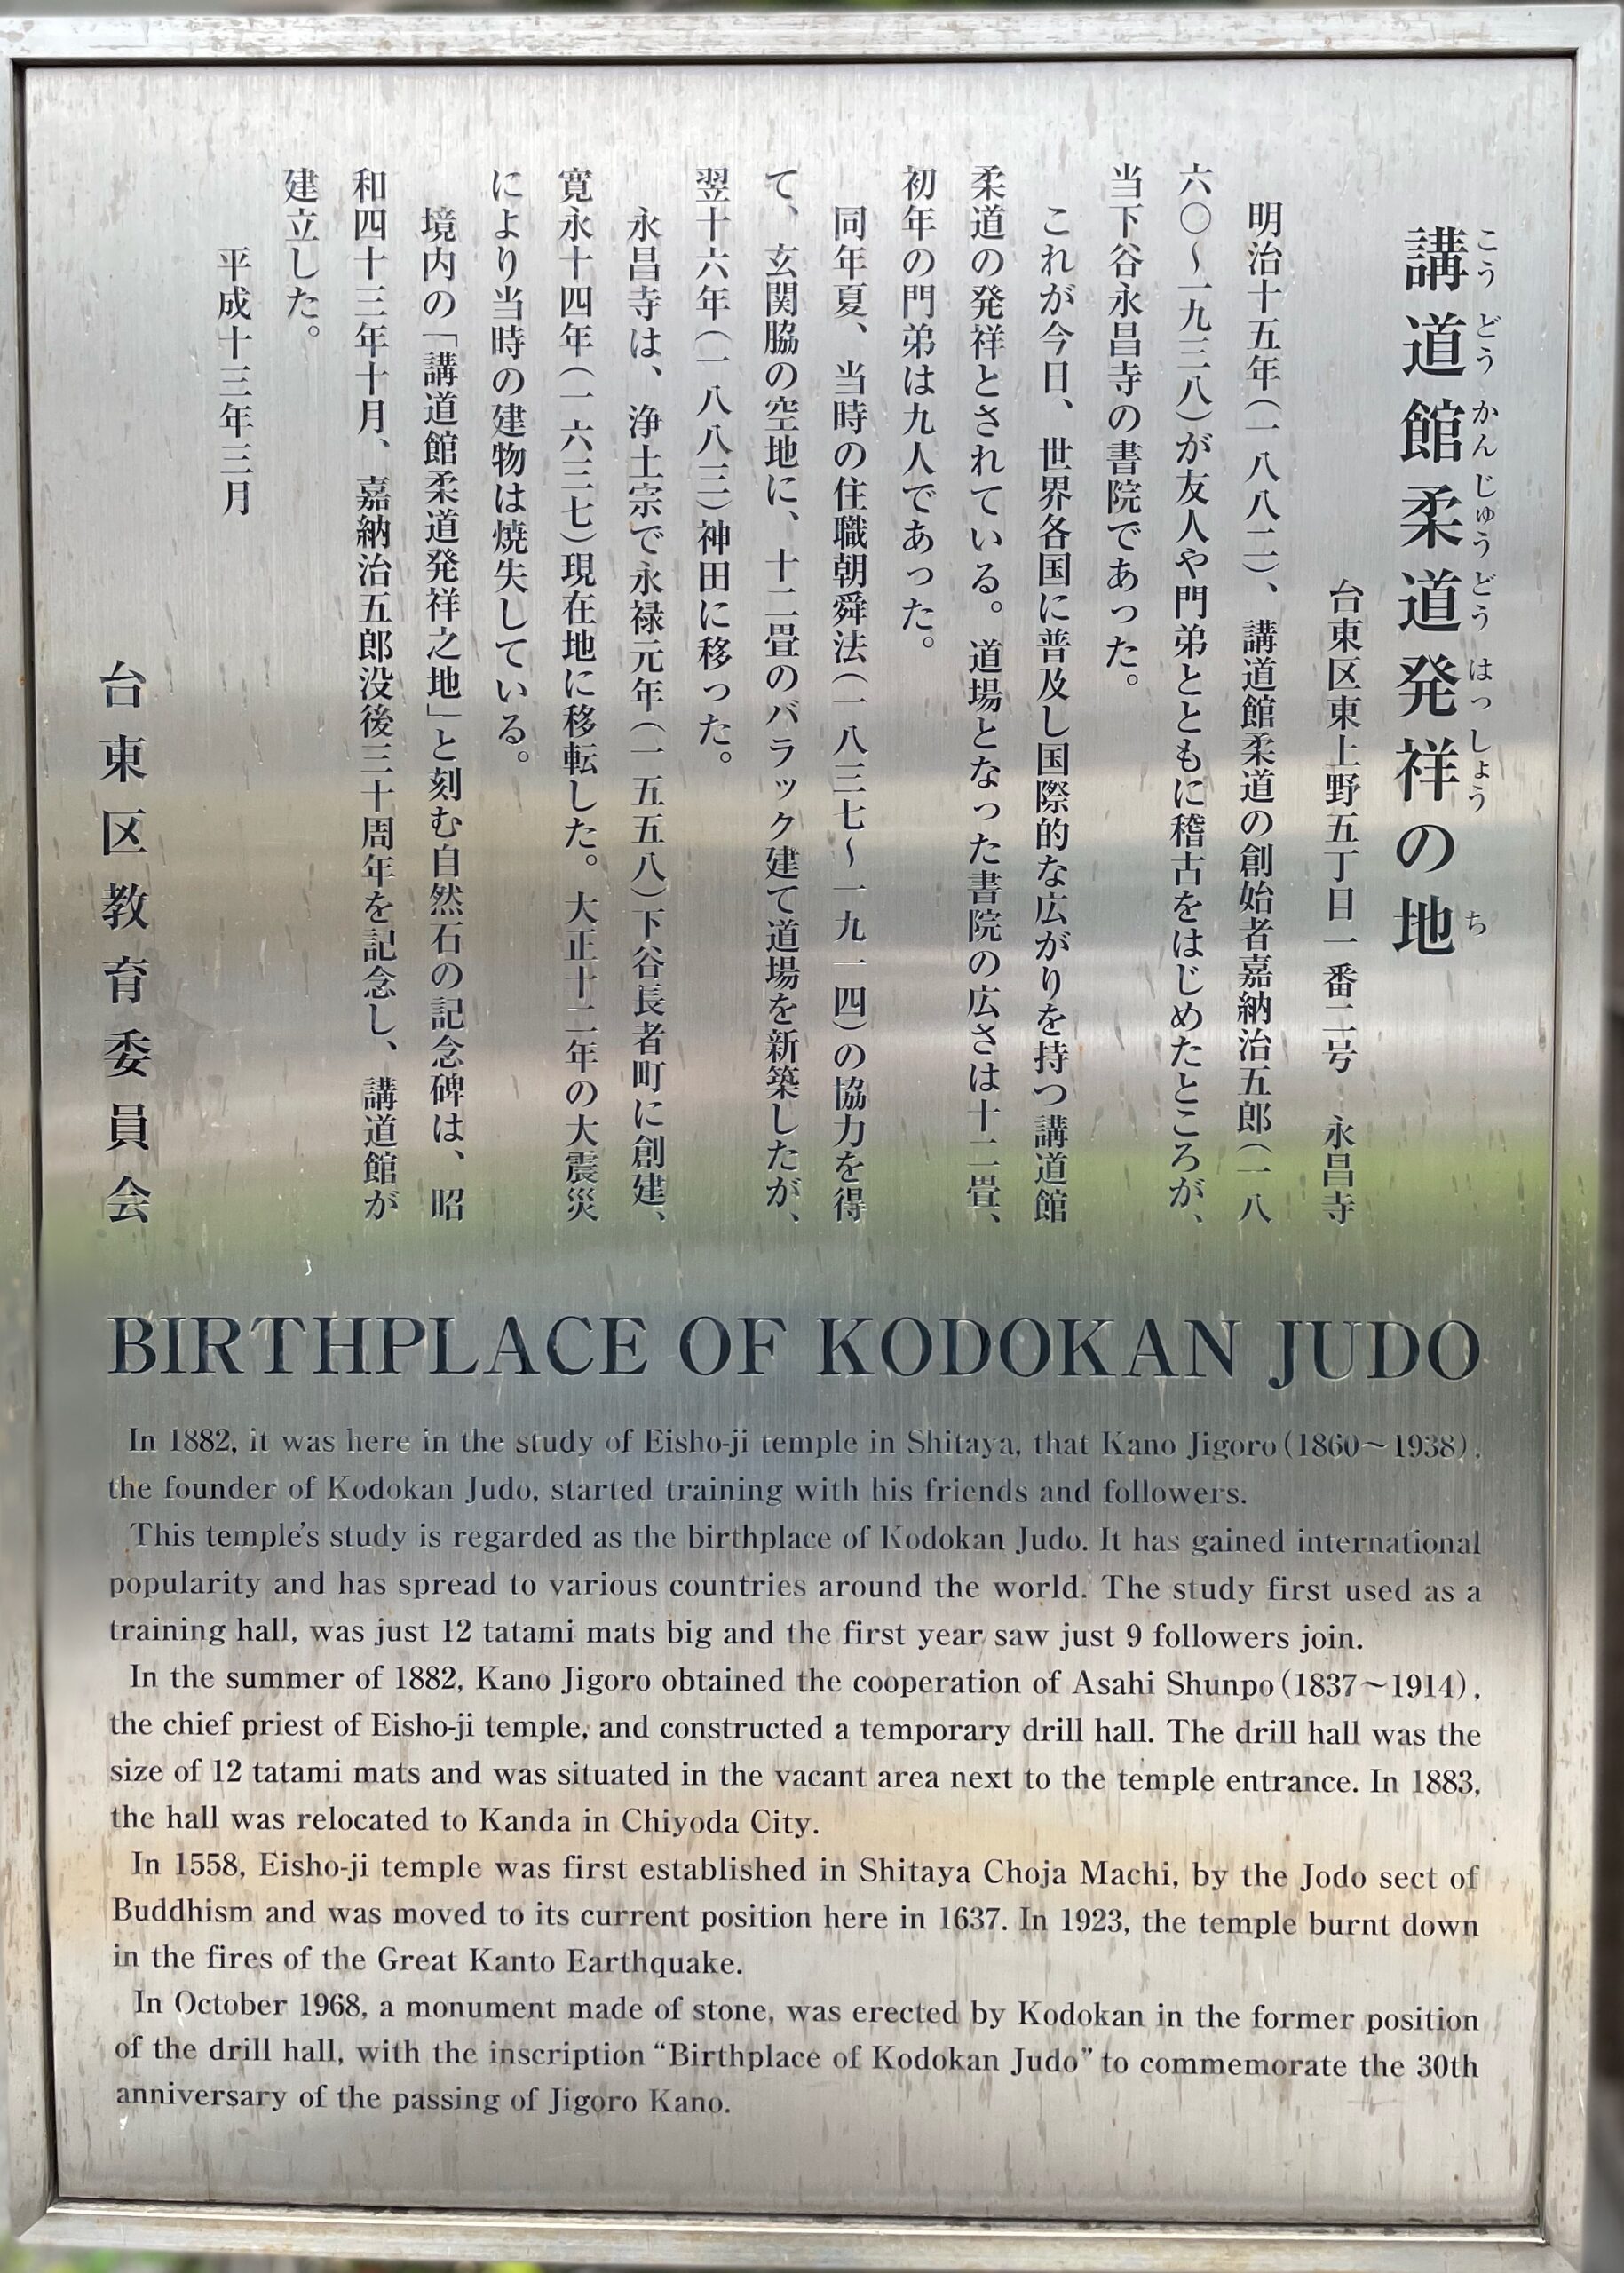 講道館柔道発祥の地
こう どう かん じゅう どう はっ しょう ち
台東区東上野五丁目一番二号 永昌寺
明治十五年(一八八二)、講道館柔道の創始者嘉納治五郎(一八
六〇〜一九三八)が友人や門弟とともに稽古をはじめたところが、
当下谷永昌寺の書院であった。
これが今日、世界各国に普及し国際的な広がりを持つ講道館
柔道の発祥とされている。道場となった書院の広さは十二畳、
初年の門弟は九人であった。
同年夏、当時の住職朝舜法(一八三七〜一九一四)の協力を得
て、玄関脇の空地に、十二畳のバラック建て道場を新築したが、
翌十六年(一八八三)神田に移った。
永昌寺は、浄土宗で永禄元年(一五五八)下谷長者町に創建、
寛永十四年(一六三七)現在地に移転した。大正十二年の大震災
により当時の建物は焼失している。
境内の「講道館柔道発祥之地」と刻む自然石の記念碑は、昭
和四十三年十月、嘉納治五郎没後三十周年を記念し、講道館が
建立した。
平成十三年三月
台東区教育委員会
BIRTHPLACE OF KODOKAN JUDO
In 1882, it was here in the study of Eisho-ji temple in Shitaya, that Kano Jigoro(1860〜1938),
the founder of Kodokan Judo, started training with his friends and followers.
This temple's study is regarded as the birthplace of Kodokan Judo. It has gained international
popularity and has spread to various countries around the world. The study first used as a
training hall, was just 12 tatami mats big and the first year saw just 9 followers join.
In the summer of 1882, Kano Jigoro obtained the cooperation of Asahi Shunpo(1837〜1914),
the chief priest of Eisho-ji temple, and constructed a temporary drill hall. The drill hall was the
size of 12 tatami mats and was situated in the vacant area next to the temple entrance. In 1883,
the hall was relocated to Kanda in Chiyoda City.
In 1558, Eisho-ji temple was first established in Shitaya Choja Machi, by the Jodo sect of
Buddhism and was moved to its current position here in 1637. In 1923, the temple burnt down
in the fires of the Great Kanto Earthquake.
In October 1968, a monument made of stone, was erected by Kodokan in the former position
of the drill hall, with the inscription “Birthplace of Kodokan Judo” to commemorate the 30th
anniversary of the passing of Jigoro Kano.